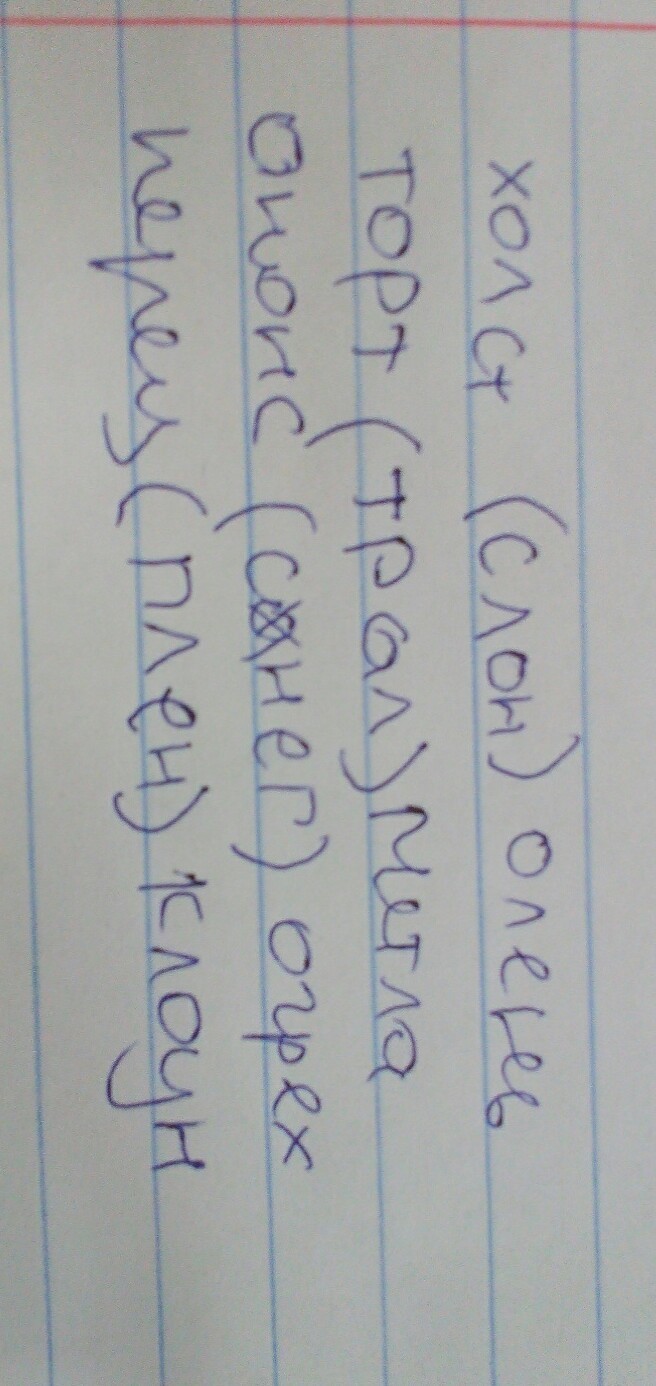 холст (слон) олень
торт (трал) метла
анонс (снег) огрех
перец (плен) клоун